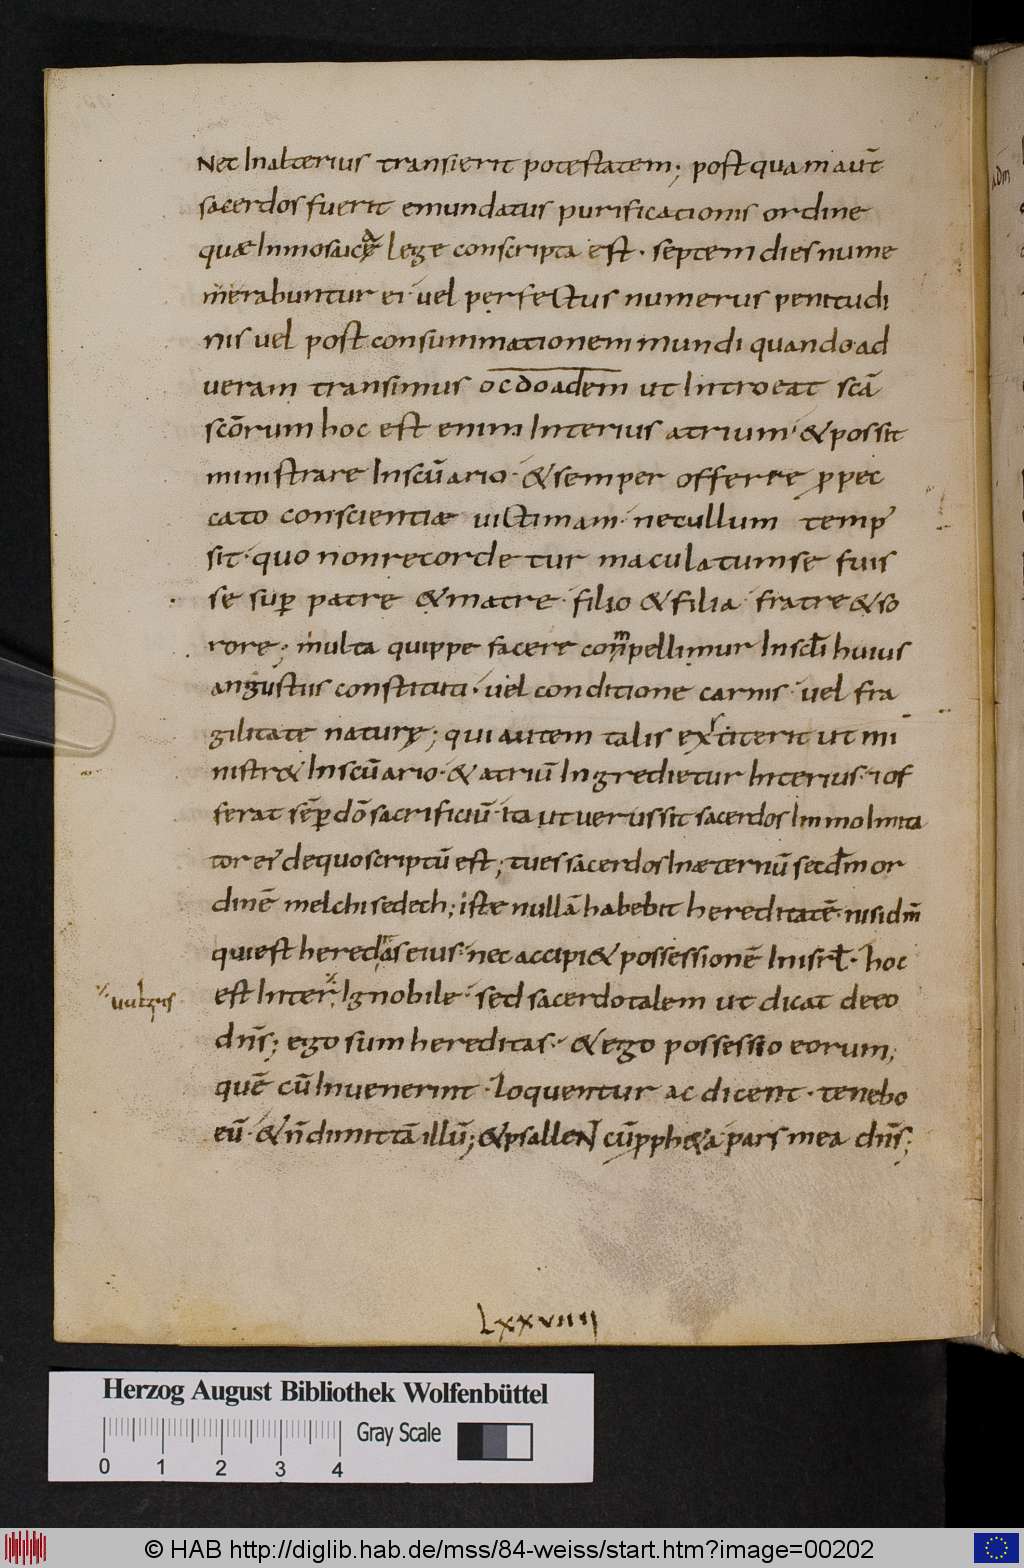 Nec In alterius transierit potestatem; post quam aut̄
sacerdos fuerit emundatus purificationis ordine
quæ In mosaicę a lege conscripta est · septem dies nume
merabuntur ei · vel perfectus numerus penitudi
nis vel post consummationem mundi quando ad
veram transimus ocdoadem ut Introeat sc̄a
sc̄orum hoc est enim Interius atrium · & possit
ministrare In sc̄uario · & semper offerre ꝓ pec
cato conscientiæ victimam · nec ullum temp'
sit · quo non recordetur maculatum se fuis
se sup̄ patre & matre · filio & filia · fratre & so
rore; multa quippe facere com̄pellimur In scl̄i huius
angustiis constituti · vel conditione carnis · vel fra
gilitate naturę; qui autem talis extiterit ut mi
nistr& In sc̄uario · & atriū Ingredietur Interius · 7 of
ferat sēp dō sacrificiū · Ita ut verus sit sacerdos Immo Imita
tor ei' de quo scriptū est; tu es sacerdos In æternū secdm̄ or
dinē melchisedech; iste nullā habebit hereditatē · nisi dm̄
qui est heredas eius · nec accipi& possessionē In isrl̄ · hoc
est Inter Ignobile · sed sacerdotalem ut dicat de eo
dn̄s; ego sum hereditas · & ego possessio eorum;
quē cū Invenerint · loquentur ac dicent · tenebo
eū · & n̄ dimittā illū; & psalleNt cū pph&a pars mea dn̄s;
vulgus
adm
Lxxviiii
Herzog August Bibliothek Wolfenbüttel
Gray Scale
0 1 2 3 4
© HAB http://diglib.hab.de/mss/84-weiss/start.htm?image=00202